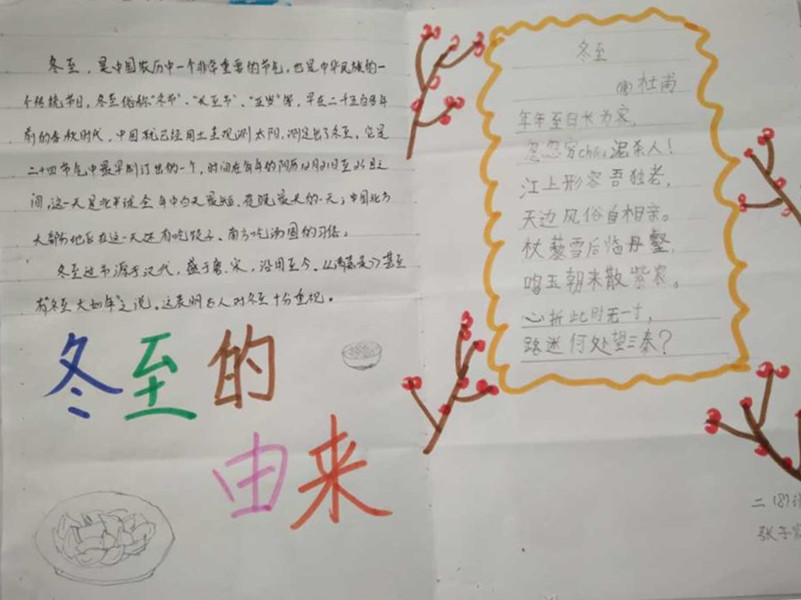 冬至，是中国农历中一个非常重要的节气，也是中华民族的一
个传统节日，冬至俗称"冬节"、"长至节"、"亚岁"等，早在二千五百多年
前的春秋时代，中国就已经用土圭观测太阳，测定出了冬至，它是
二十四节气中最早制订出的一个，时间在每年的阳历12月21日至23日之
间，这一天是北半球全年中白天最短、夜晚最长的一天；中国北方
大部分地区在这一天还有吃饺子、南方吃汤圆的习俗。
冬至过节源于汉代，盛于唐、宋，沿用至今。《清嘉录》甚至
有"冬至大如年"之说。这表明古人对冬至十分重视。
冬至的
由来
冬至
杜甫
年年至日长为客，
忽忽穷chóu泥杀人！
江上形容吾独老，
天边风俗自相亲。
杖藜雪后临丹壑，
鸣玉朝来散紫宸。
心折此时无一寸，
路迷何处望三秦？
二(8)
张子